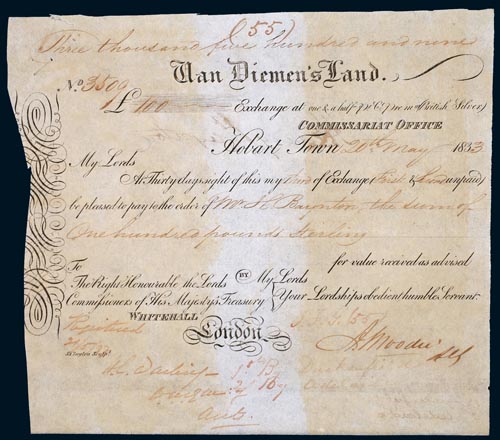 (55)
Three thousand five hundred and nine
Van Diemen's Land.
No. 3509
£ 100 Exchange at one & a half p Ct. (prem in British Silver)
COMMISSARIAT OFFICE
Hobart Town 20th May 1833
My Lords
At Thirty days sight of this my Third of Exchange (First & Second unpaid)
be pleased to pay to the order of Mr H. Baynton the sum of
One hundred pounds Sterling
for value received as advised
To
The Right Honourable the Lords BY My Lords
Commissioners of His Majesty's Treasury Your Lordships obedient humble Servant
WHITEHALL
London
Registered
A Moodie